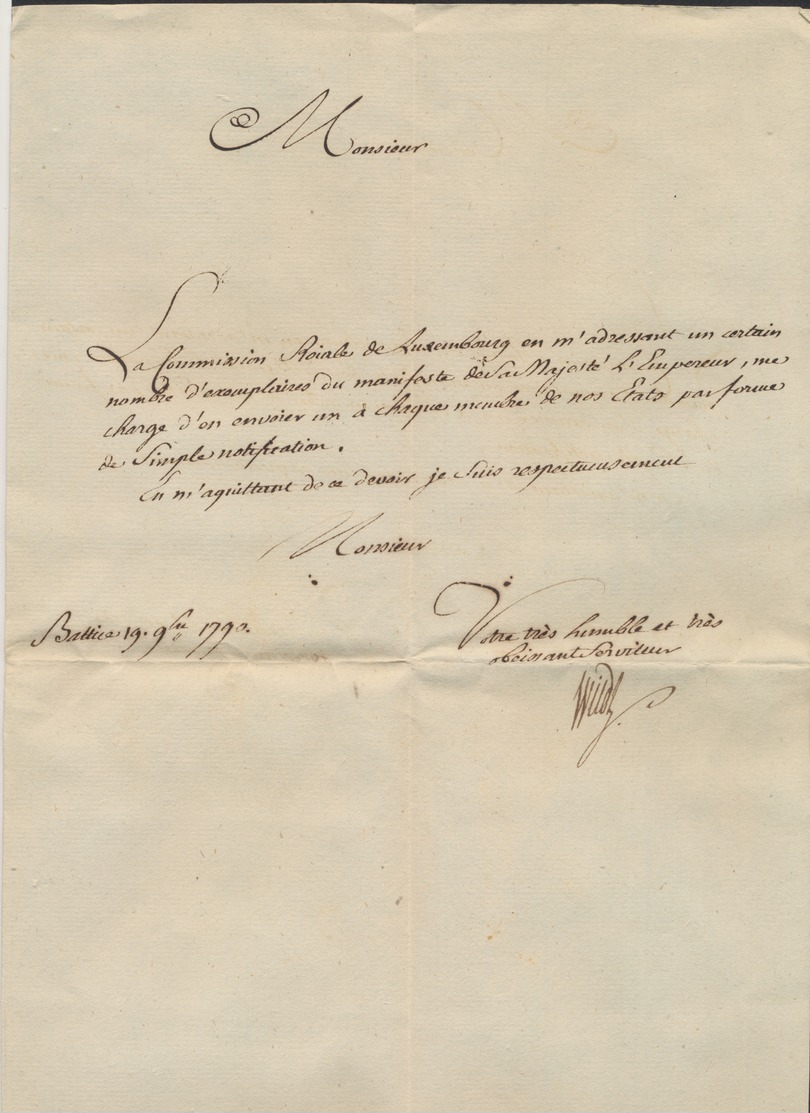 Monsieur
La Commission Roiale de Luxembourg en m'adressant un certain
nombre d'exemplaires du manifeste de Sa Majesté L'Empereur, me
charge d'en envoier un à chaque membre de nos Etats par forme
de Simple notification.
En m'aquittant de ce devoir je suis respectueusement
Monsieur
Battice 19. 9bre 1790.
Votre très humble et très
obeissant Serviteur